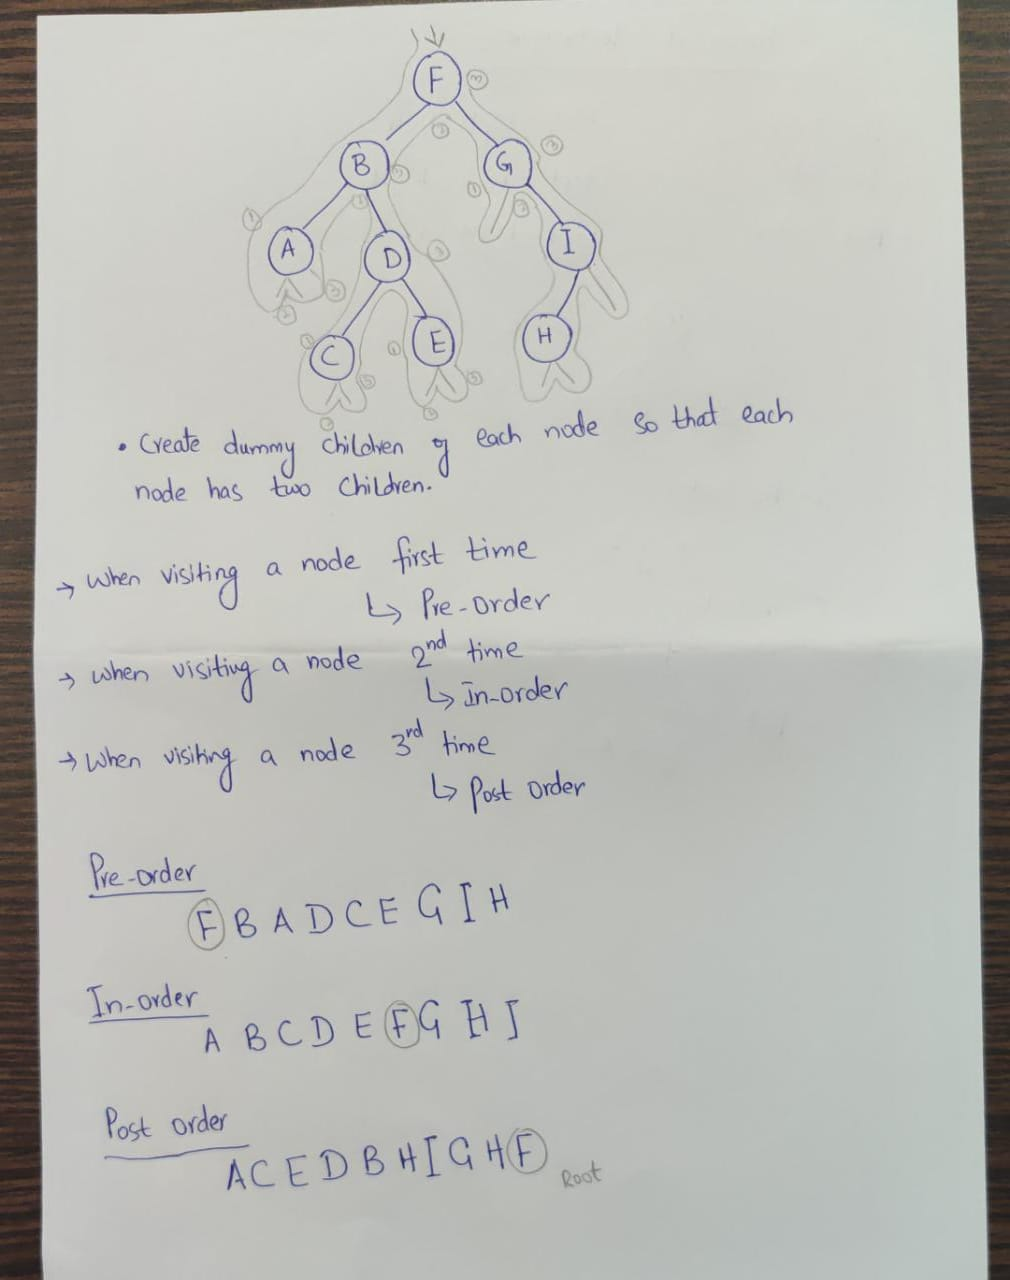 F
③
②
B
②
G
③
①
①
②
①
A
D
③
I
③
②
①
C
①
E
H
③
③
②
②
• Create dummy children of each node so that each
node has two children.
→ When visiting a node first time
↳ Pre-order
→ When visiting a node 2nd time
↳ In-order
→ When visiting a node 3rd time
↳ Post order
Pre-order
F B A D C E G I H
In-order
A B C D E F G H I
Post order
A C E D B H I G H F
Root